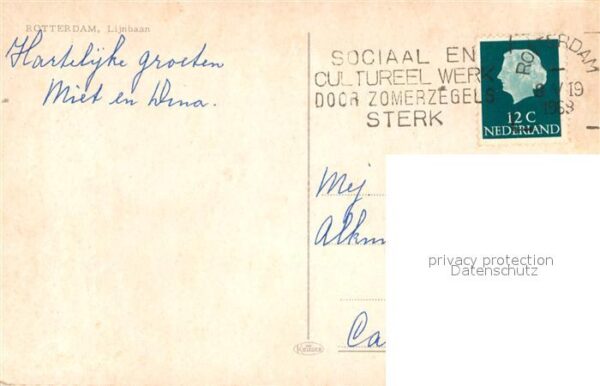 ROTTERDAM, Lijnbaan
Hartelijke groeten
Miet en Dina.
SOCIAAL EN
CULTUREEL WERK
DOOR ZOMERZEGELS
STERK
ROTTERDAM
19
1968
12 C
NEDERLAND
Mej
Alkm
Ca
privacy protection
Datenschutz